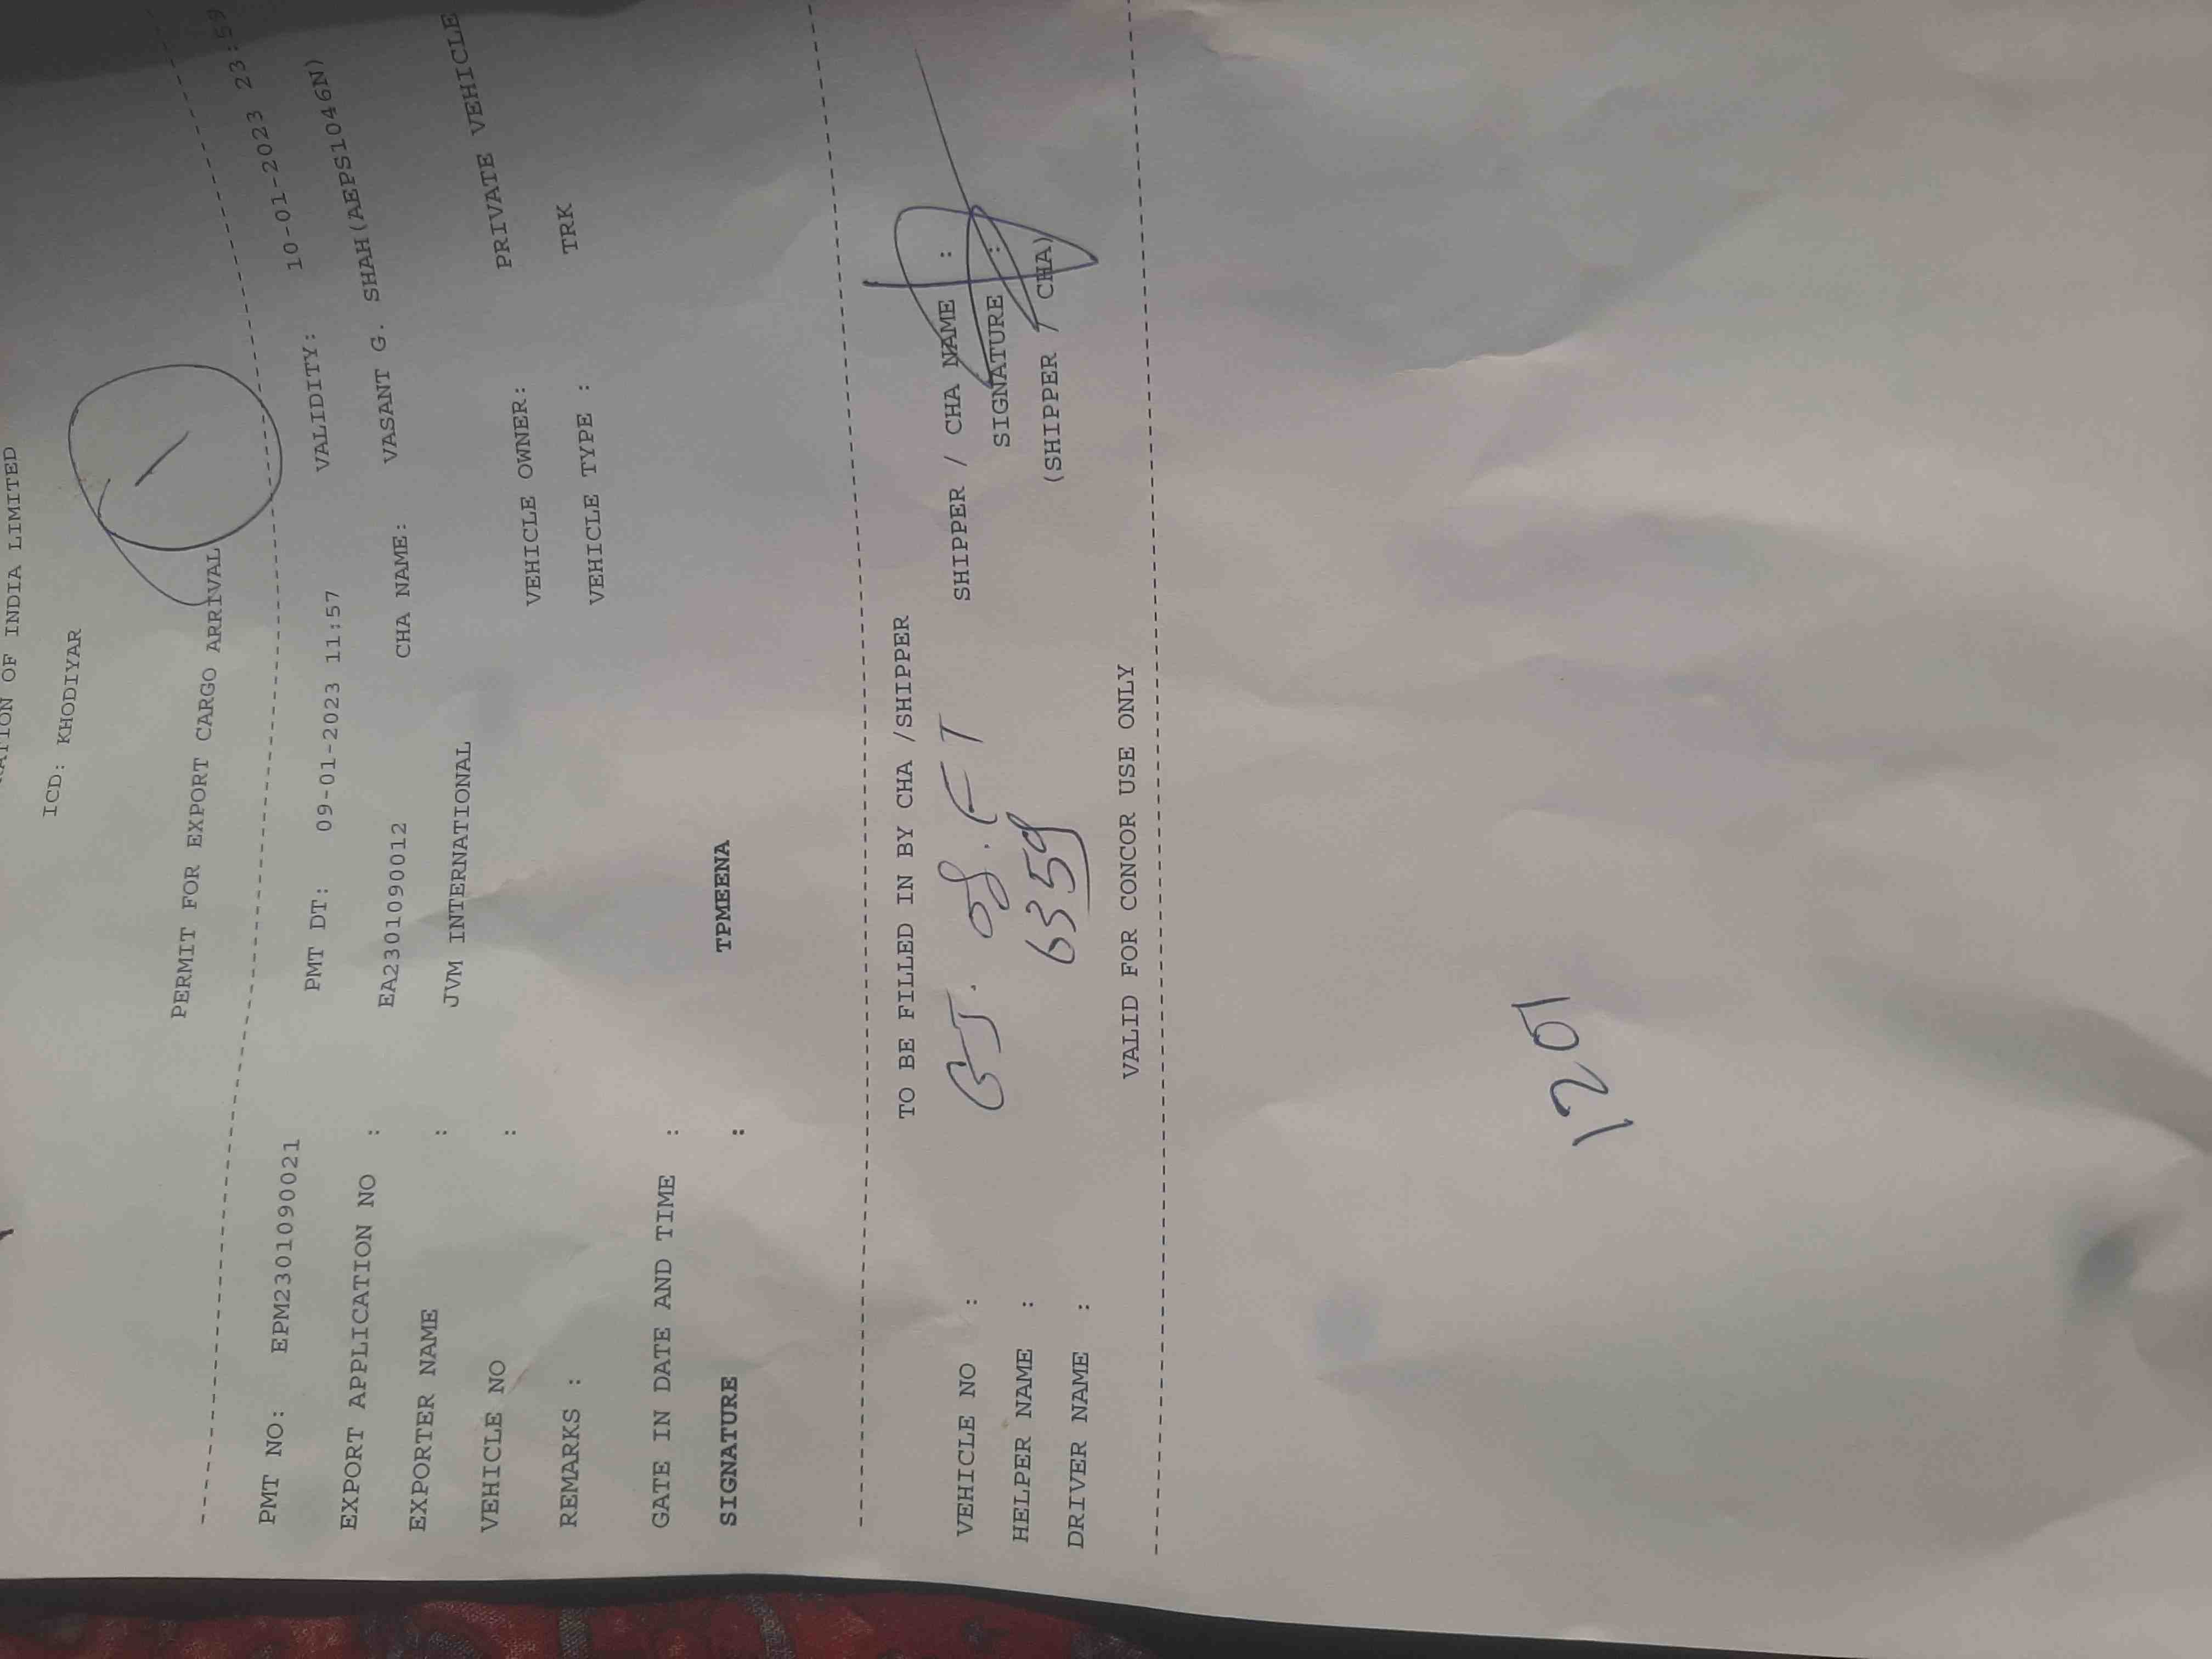 OF INDIA LIMITED
ICD: KHODIYAR
PERMIT FOR EXPORT CARGO ARRIVAL
PMT NO: EPM2301090021 PMT DT: 09-01-2023 11:57 VALIDITY: 10-01-2023 23:59
EXPORT APPLICATION NO : EA2301090012 CHA NAME: VASANT G. SHAH(AEPS1046N)
EXPORTER NAME : JVM INTERNATIONAL
VEHICLE NO : VEHICLE OWNER: PRIVATE VEHICLE
REMARKS : VEHICLE TYPE : TRK
GATE IN DATE AND TIME :
SIGNATURE : TPMEENA
TO BE FILLED IN BY CHA /SHIPPER
VEHICLE NO : GJ. 08. FT SHIPPER / CHA NAME :
6359 SIGNATURE :
HELPER NAME : (SHIPPER / CHA)
DRIVER NAME :
VALID FOR CONCOR USE ONLY
1201